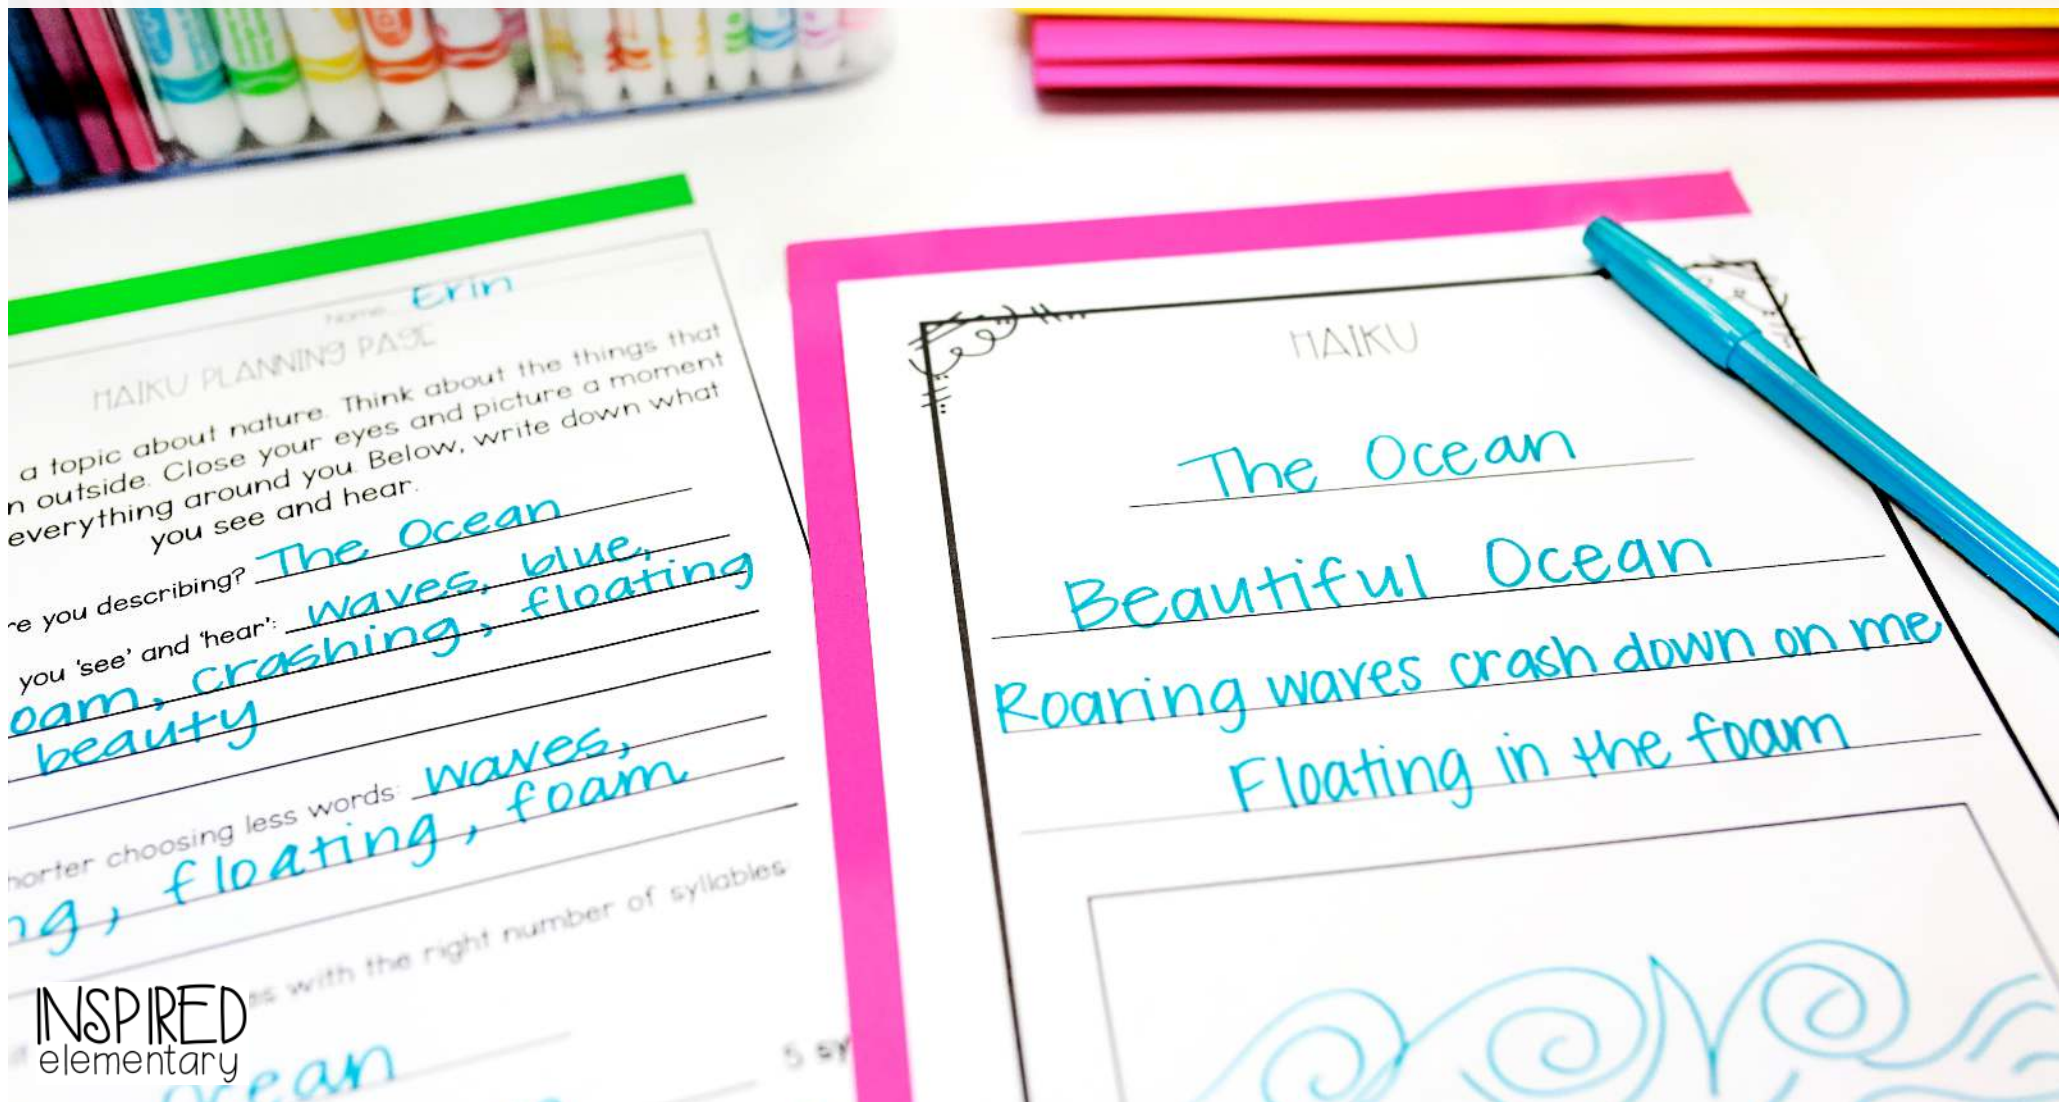 Name Erin
HAIKU PLANNING PAGE
a topic about nature. Think about the things that
outside. Close your eyes and picture a moment
everything around you. Below, write down what
you see and hear.
you describing? The Ocean
you 'see' and 'hear': waves, blue,
crashing, floating
beauty
choosing less words: waves,
floating, foam
with the right number of syllables
5
HAIKU
The Ocean
Beautiful Ocean
Roaring waves crash down on me
Floating in the foam
INSPIRED
elementary